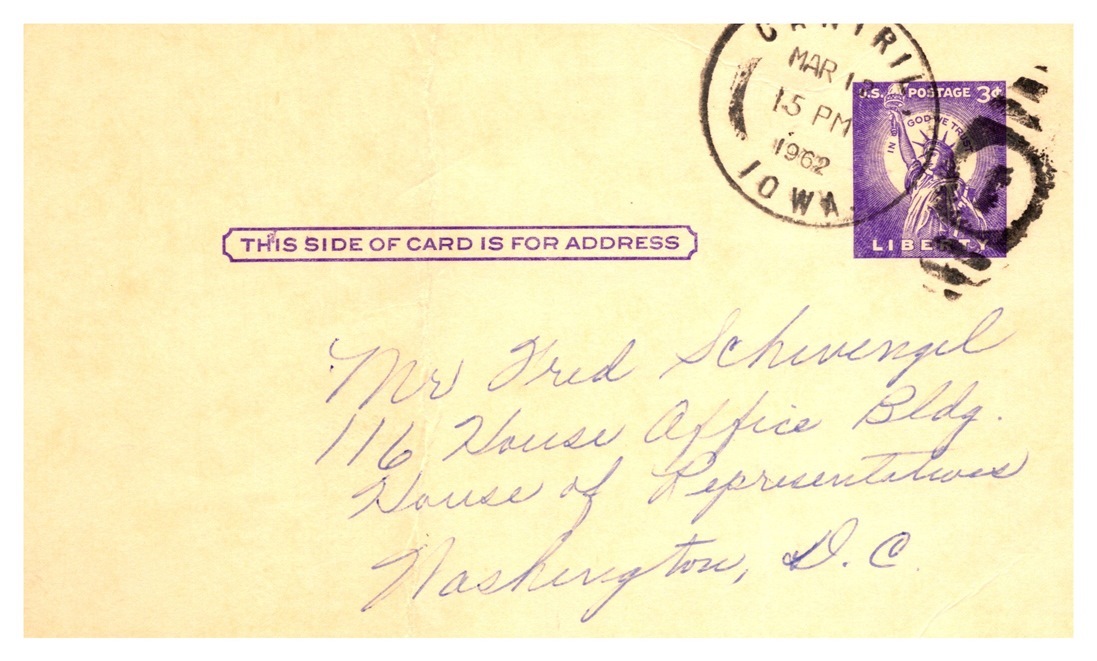 CANTRIL
MAR 1
15 PM
1962
IOWA
U.S. POSTAGE 3¢
IN GOD WE TRUST
LIBERTY
THIS SIDE OF CARD IS FOR ADDRESS
Mr Fred Schwengel
116 House Office Bldg.
House of Representatives
Washington, D.C.